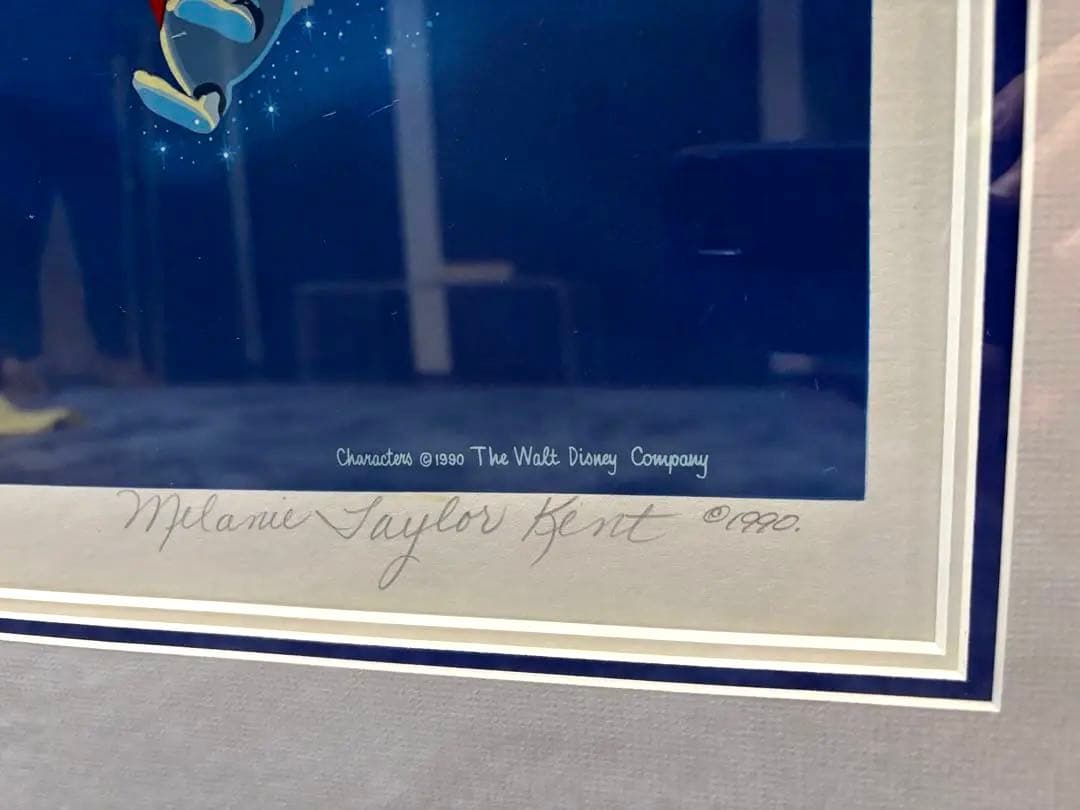 Characters ©1990 The Walt Disney Company
Melanie Taylor Kent ©1990.